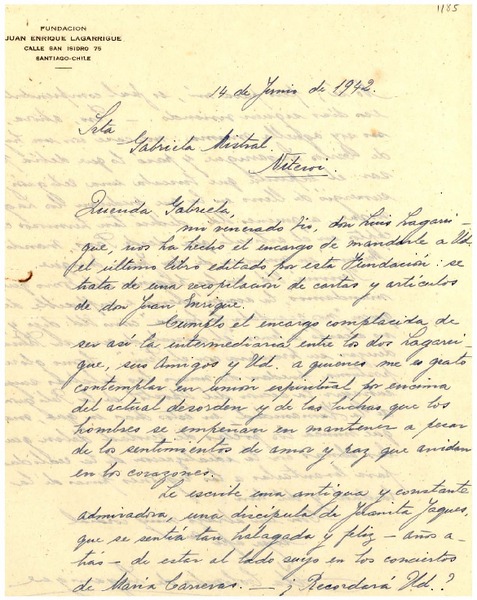 1185
FUNDACION
JUAN ENRIQUE LAGARRIGUE
CALLE SAN ISIDRO 75
SANTIAGO-CHILE
14 de Junio de 1942.
Srta
Gabriela Mistral.
Niteroi.
Querida Gabriela,
mi venerado tío, don Luis Lagarri-
gue, nos ha hecho el encargo de mandarle a Ud.
el último libro editado por esta Fundación: se
trata de una recopilación de cartas y artículos
de don Juan Enrique.
Cumplo el encargo complacida de
ser así la intermediaria entre los dos Lagarri-
gue, sus Amigos y Ud. a quienes me es grato
contemplar en unión espiritual por encima
del actual desorden y de las luchas que los
hombres se empeñan en mantener a pesar
de los sentimientos de amor y paz que anidan
en los corazones.
Le escribe una antigua y constante
admiradora, una discípula de Juanita Jaques,
que se sentía tan halagada y feliz - años a-
trás - de estar al lado suyo en los conciertos
de María Carreras. - ¿Recordará Ud.?